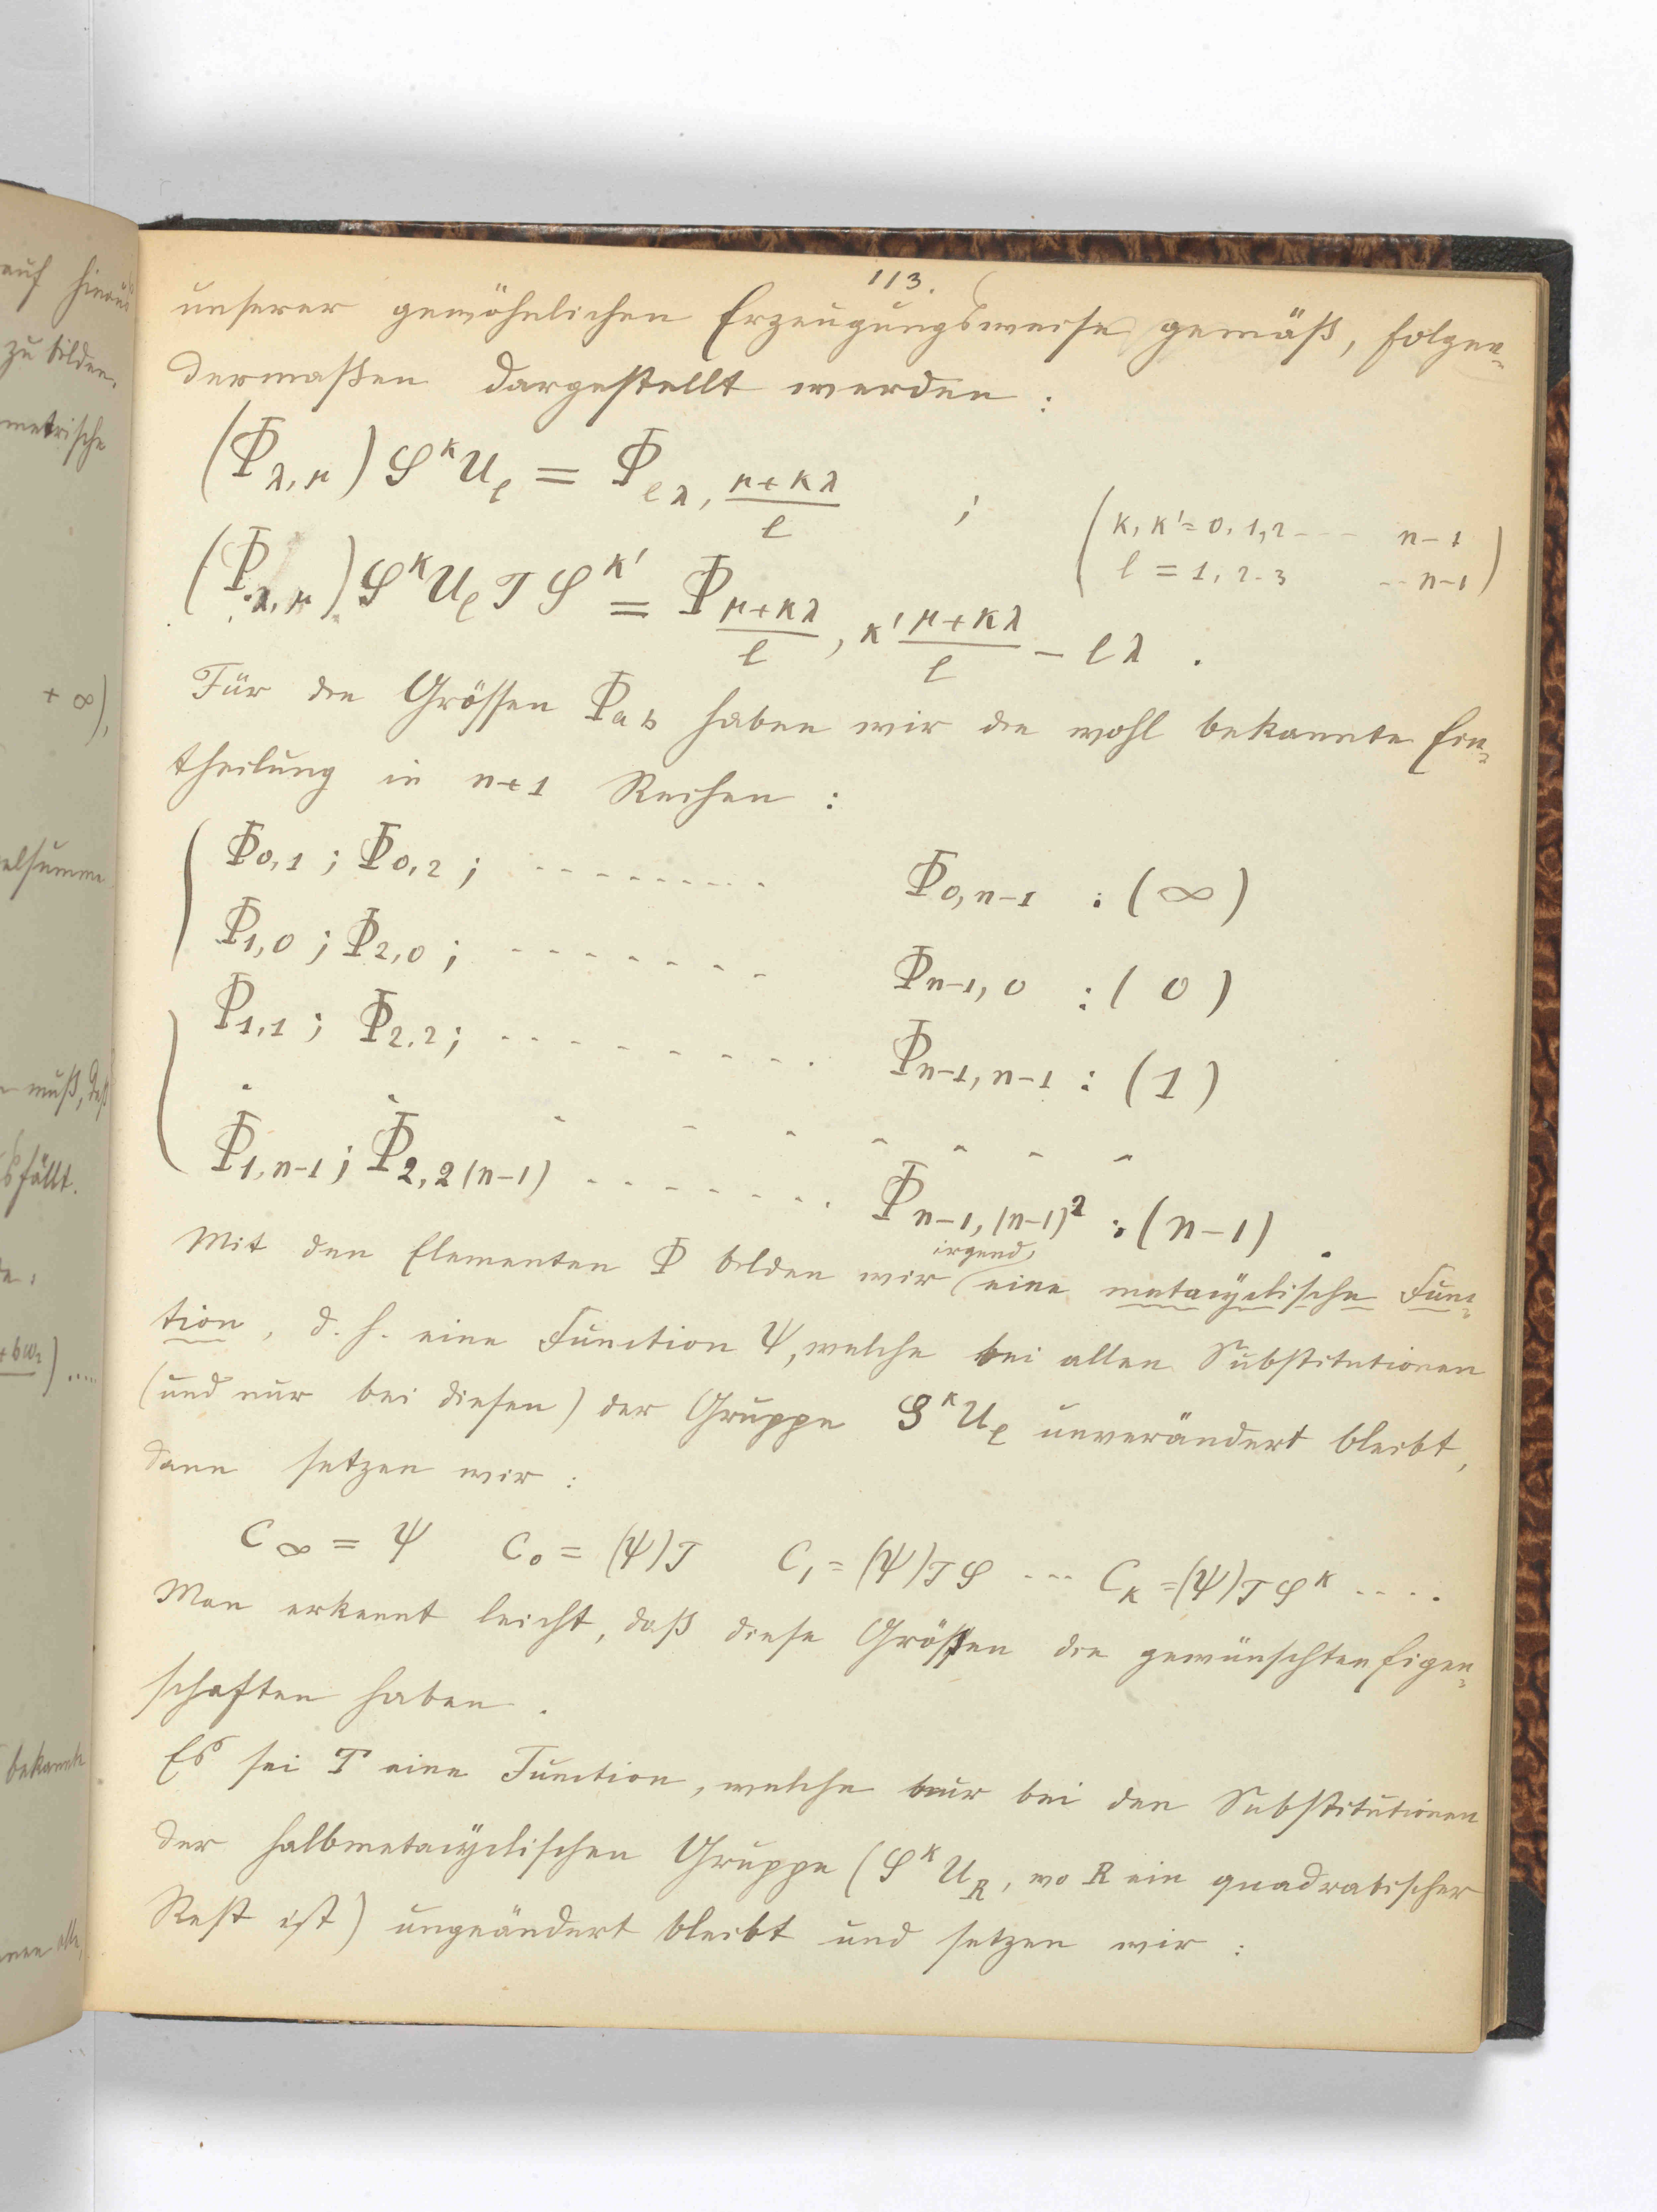 auf hinaus
zu bilden.
metrische
+ ∞),
elsumme
muß, daß
sfällt.
+bω₂).....
bekannte
113.
unserer gewöhnlichen Erzeugungsweise gemäß, folgen-
dermaßen dargestellt werden :
(Φ_{λ,μ}) S^k U_l = Φ_{lλ, (μ+kλ)/l} ; (k, k' = 0, 1, 2 --- n-1
(Φ_{λ,μ}) S^k U_l T S^{k'} = Φ_{(μ+kλ)/l, k' (μ+kλ)/l - lλ} . l = 1, 2. 3 -- n-1)
Für die Grössen Φ_{a b} haben wir die wohl bekannte Ein-
theilung in n+1 Reihen :
Φ_{0,1} ; Φ_{0,2} ; --------- Φ_{0,n-1} : (∞)
Φ_{1,0} ; Φ_{2,0} ; ------- Φ_{n-1,0} : ( 0 )
Φ_{1,1} ; Φ_{2,2} ; --------- Φ_{n-1,n-1} : (1)
. . . . . . . . .
Φ_{1,n-1} ; Φ_{2,2(n-1)} ------- Φ_{n-1,(n-1)²} : (n-1) .
Mit den Elementen Φ bilden wir irgend eine metacyclische Func-
tion, d. h. eine Function Ψ, welche bei allen Substitutionen
(und nur bei diesen) der Gruppe S^k U_l unverändert bleibt,
dann setzen wir :
C_∞ = Ψ C_0 = (Ψ)T C_1 = (Ψ)TS --- C_k = (Ψ)TS^k ....
Man erkennt leicht, daß diese Größen die gewünschten Eigen-
schaften haben .
Es sei T eine Function, welche nur bei den Substitutionen
der halbmetacyclischen Gruppe (S^k U_R, wo R ein quadratischer
Rest ist) ungeändert bleibt und setzen wir :